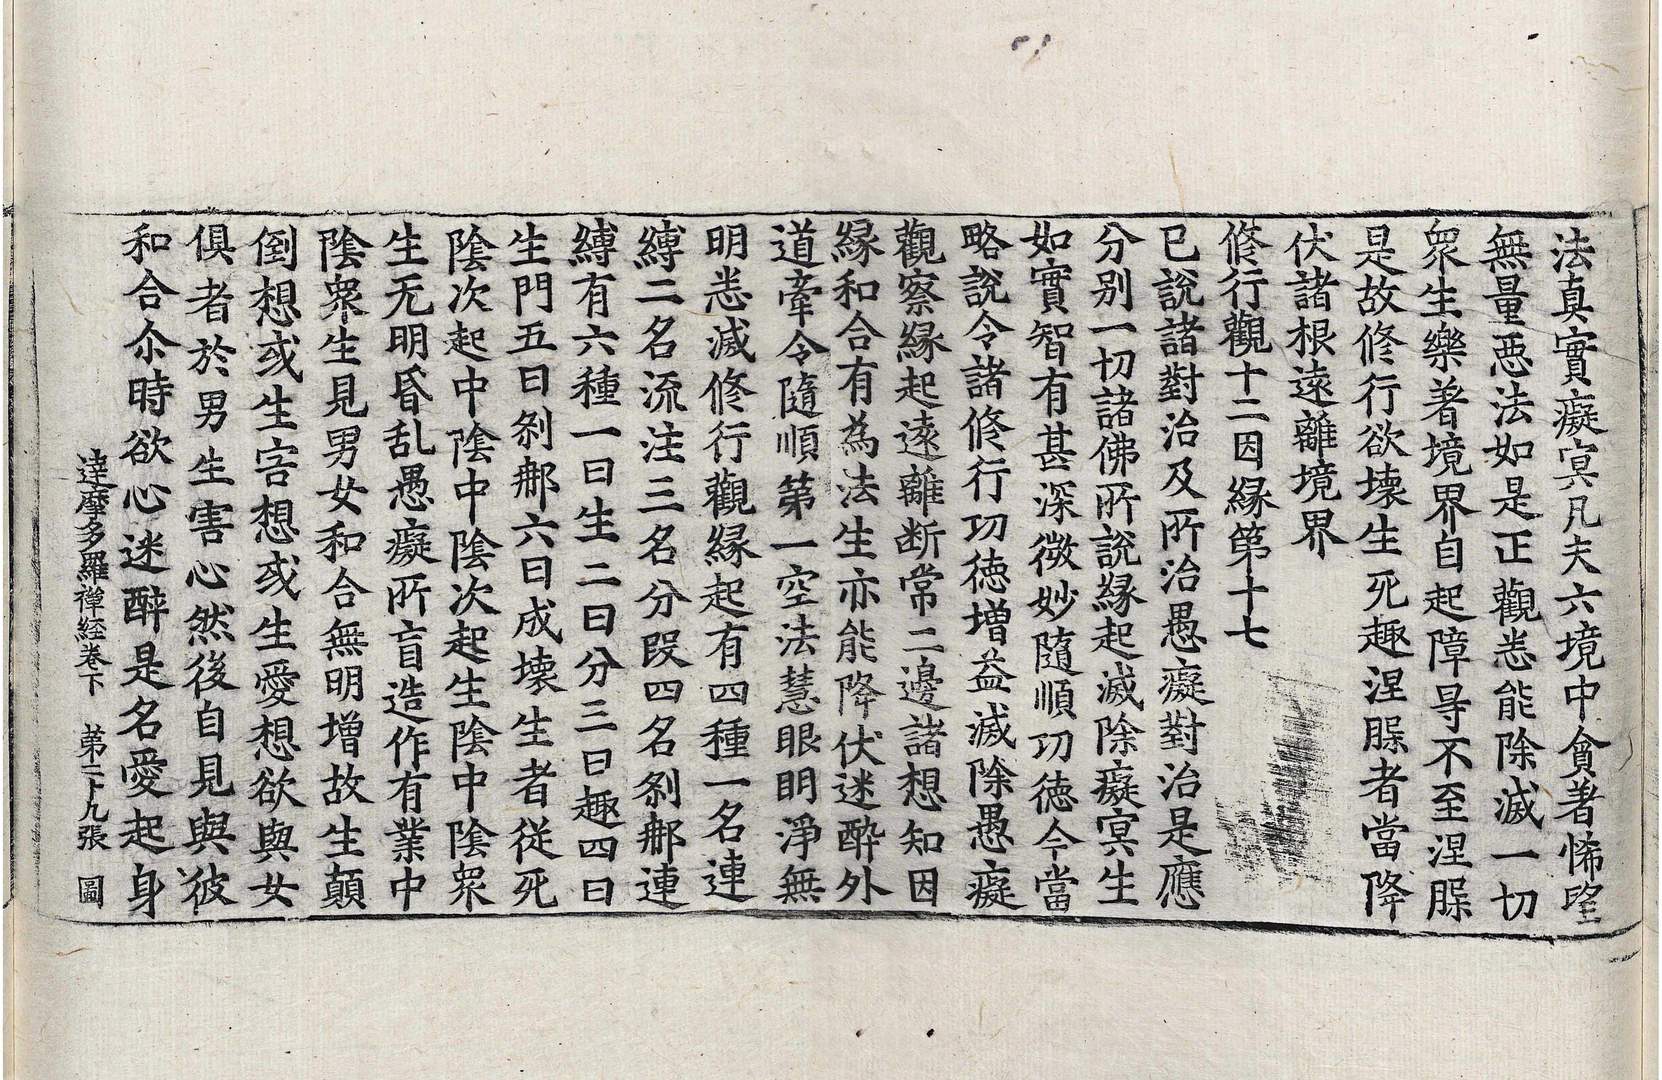 法真實癡冥凡夫六境中貪著悕望
無量惡法如是正觀悉能除滅一切
衆生樂著境界自起障㝵不至涅槃
是故修行欲壞生死趣涅槃者當降
伏諸根遠離境界
修行觀十二因緣第十七
已說諸對治及所治愚癡對治是應
分別一切諸佛所說緣起滅除癡冥生
如實智有甚深微妙隨順功德今當
略說令諸修行功德增益滅除愚癡
觀察緣起遠離断常二邊諸想知因
緣和合有為法生亦能降伏迷醉外
道牽令隨順第一空法慧眼明淨無
明悉滅修行觀緣起有四種一名連
縛二名流注三名分段四名剎那連
縛有六種一曰生二曰分三曰趣四曰
生門五曰剎那六曰成壞生者從死
陰次起中陰中陰次起生陰中陰衆
生无明昏乱愚癡所盲造作有業中
陰衆生見男女和合無明增故生顛
倒想或生害想或生愛想欲與女
俱者於男生害心然後自見與彼
和合尒時欲心迷醉是名愛起身
達摩多羅禪経卷下 第二十九張 圖